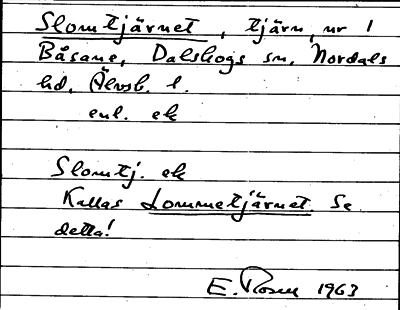 Slomtjärnet, tjärn, nr 1
Båsane, Dalskogs sn, Nordals
hd, Älvsb. l.
enl. ek
Slomtj. ek
Kallas Lommetjärnet. Se
detta!
E. Rosen 1963